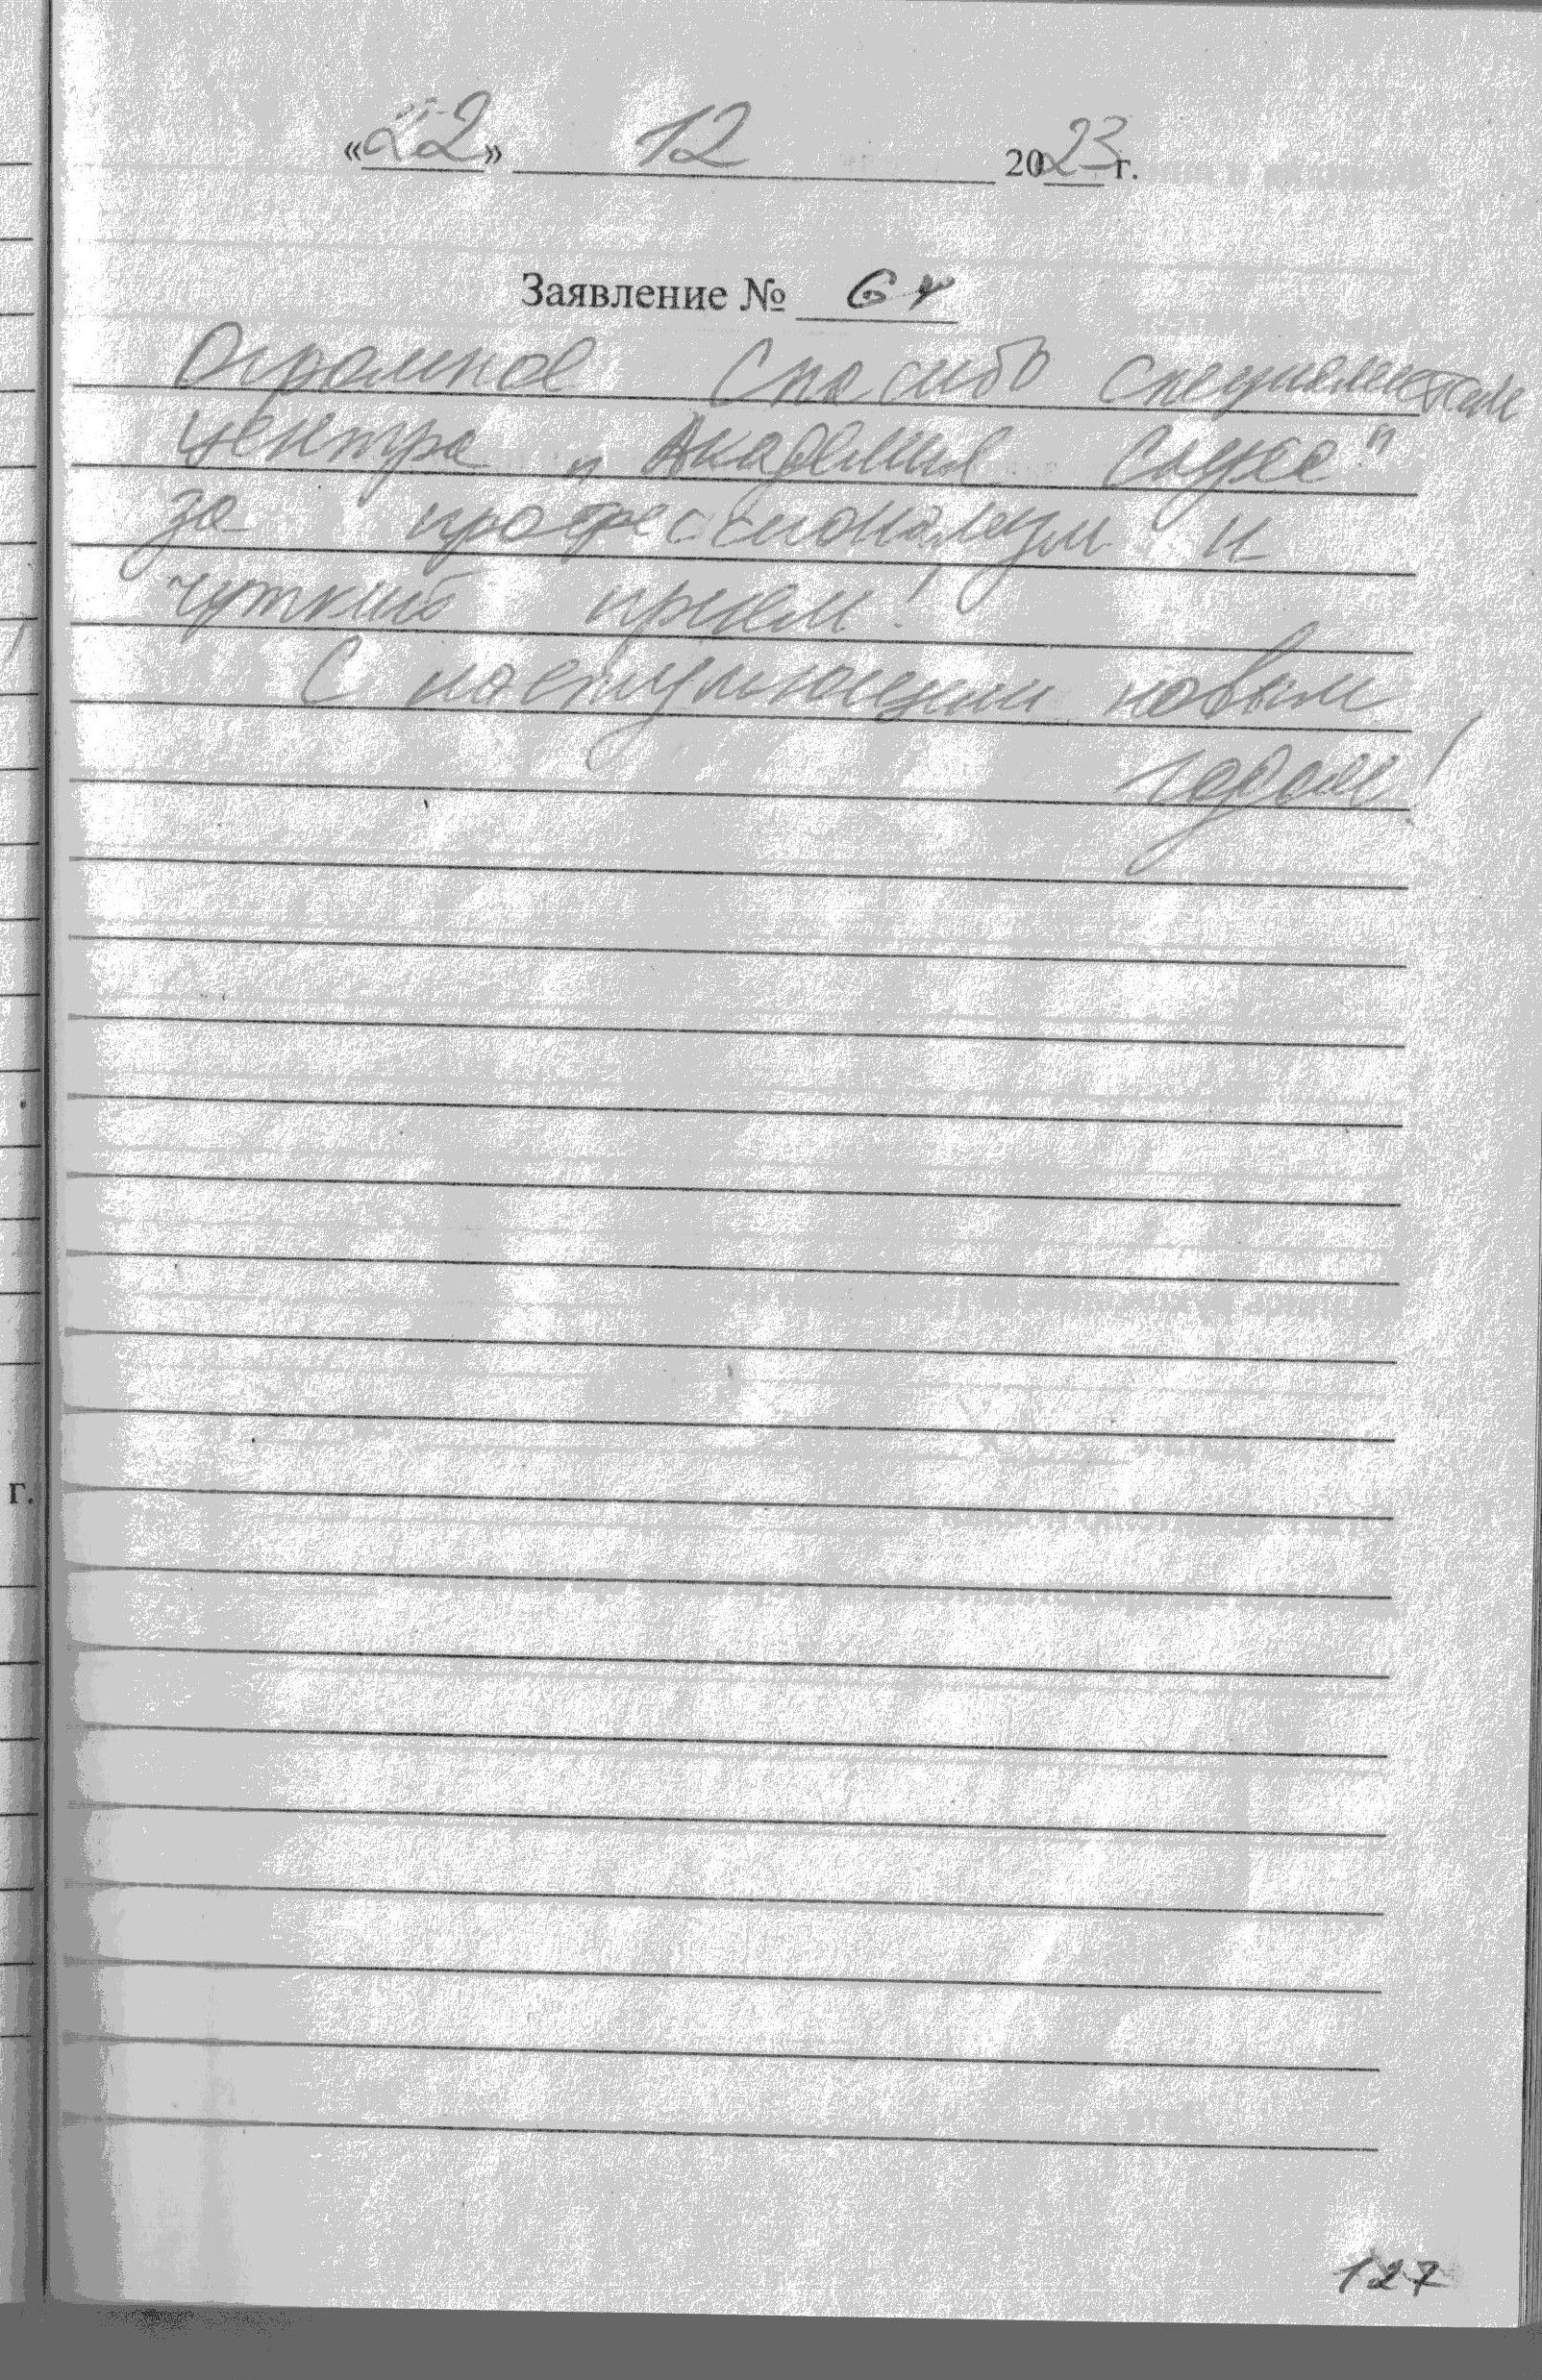 «22» 12 2023 г.
Заявление № 64
Огромное Спасибо специалистам
центра "Академия Слуха"
за профессионализм и
чуткий прием!
С наступающим новым
годом!
г.
127